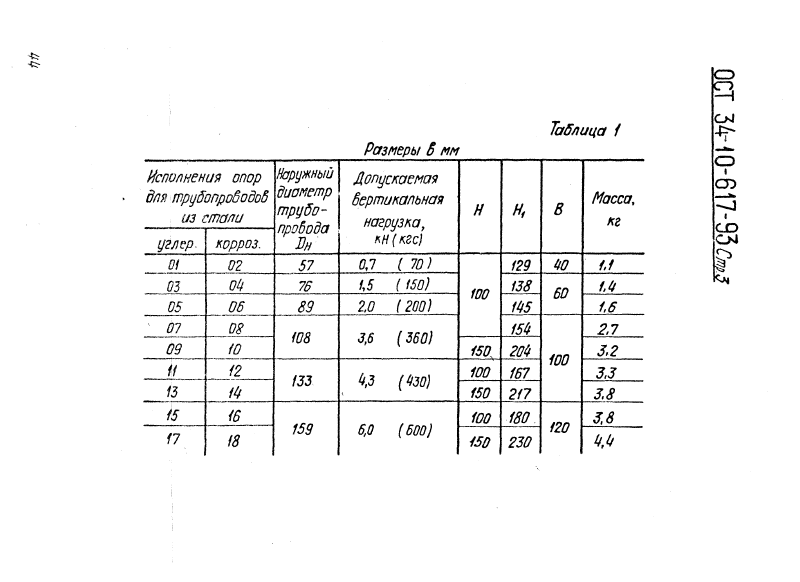 44
ОСТ 34-10-617-93 Стр.3
Таблица 1
Размеры в мм
Исполнения опор
для трубопроводов
из стали
углер. корроз.
Наружный
диаметр
трубо-
провода
Dн
Допускаемая
вертикальная
нагрузка,
кн (кгс)
H
H1
B
Масса,
кг
01 02 57 0,7 (70) 100 129 40 1,1
03 04 76 1,5 (150) 138 60 1,4
05 06 89 2,0 (200) 145 1,6
07 08 108 3,6 (360) 154 100 2,7
09 10 150 204 3,2
11 12 133 4,3 (430) 100 167 3,3
13 14 150 217 3,8
15 16 159 6,0 (600) 100 180 120 3,8
17 18 150 230 4,4